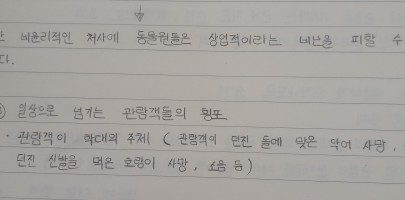 ↓
비윤리적인 처사에 동물원들은 상업적이라는 비난을 피할 수
다.
일상으로 넘기는 관람객들의 횡포
· 관람객이 학대의 주체 ( 관람객이 던진 돌에 맞은 악어 사망,
던진 신발을 먹은 호랑이 사망, 소음 등 )